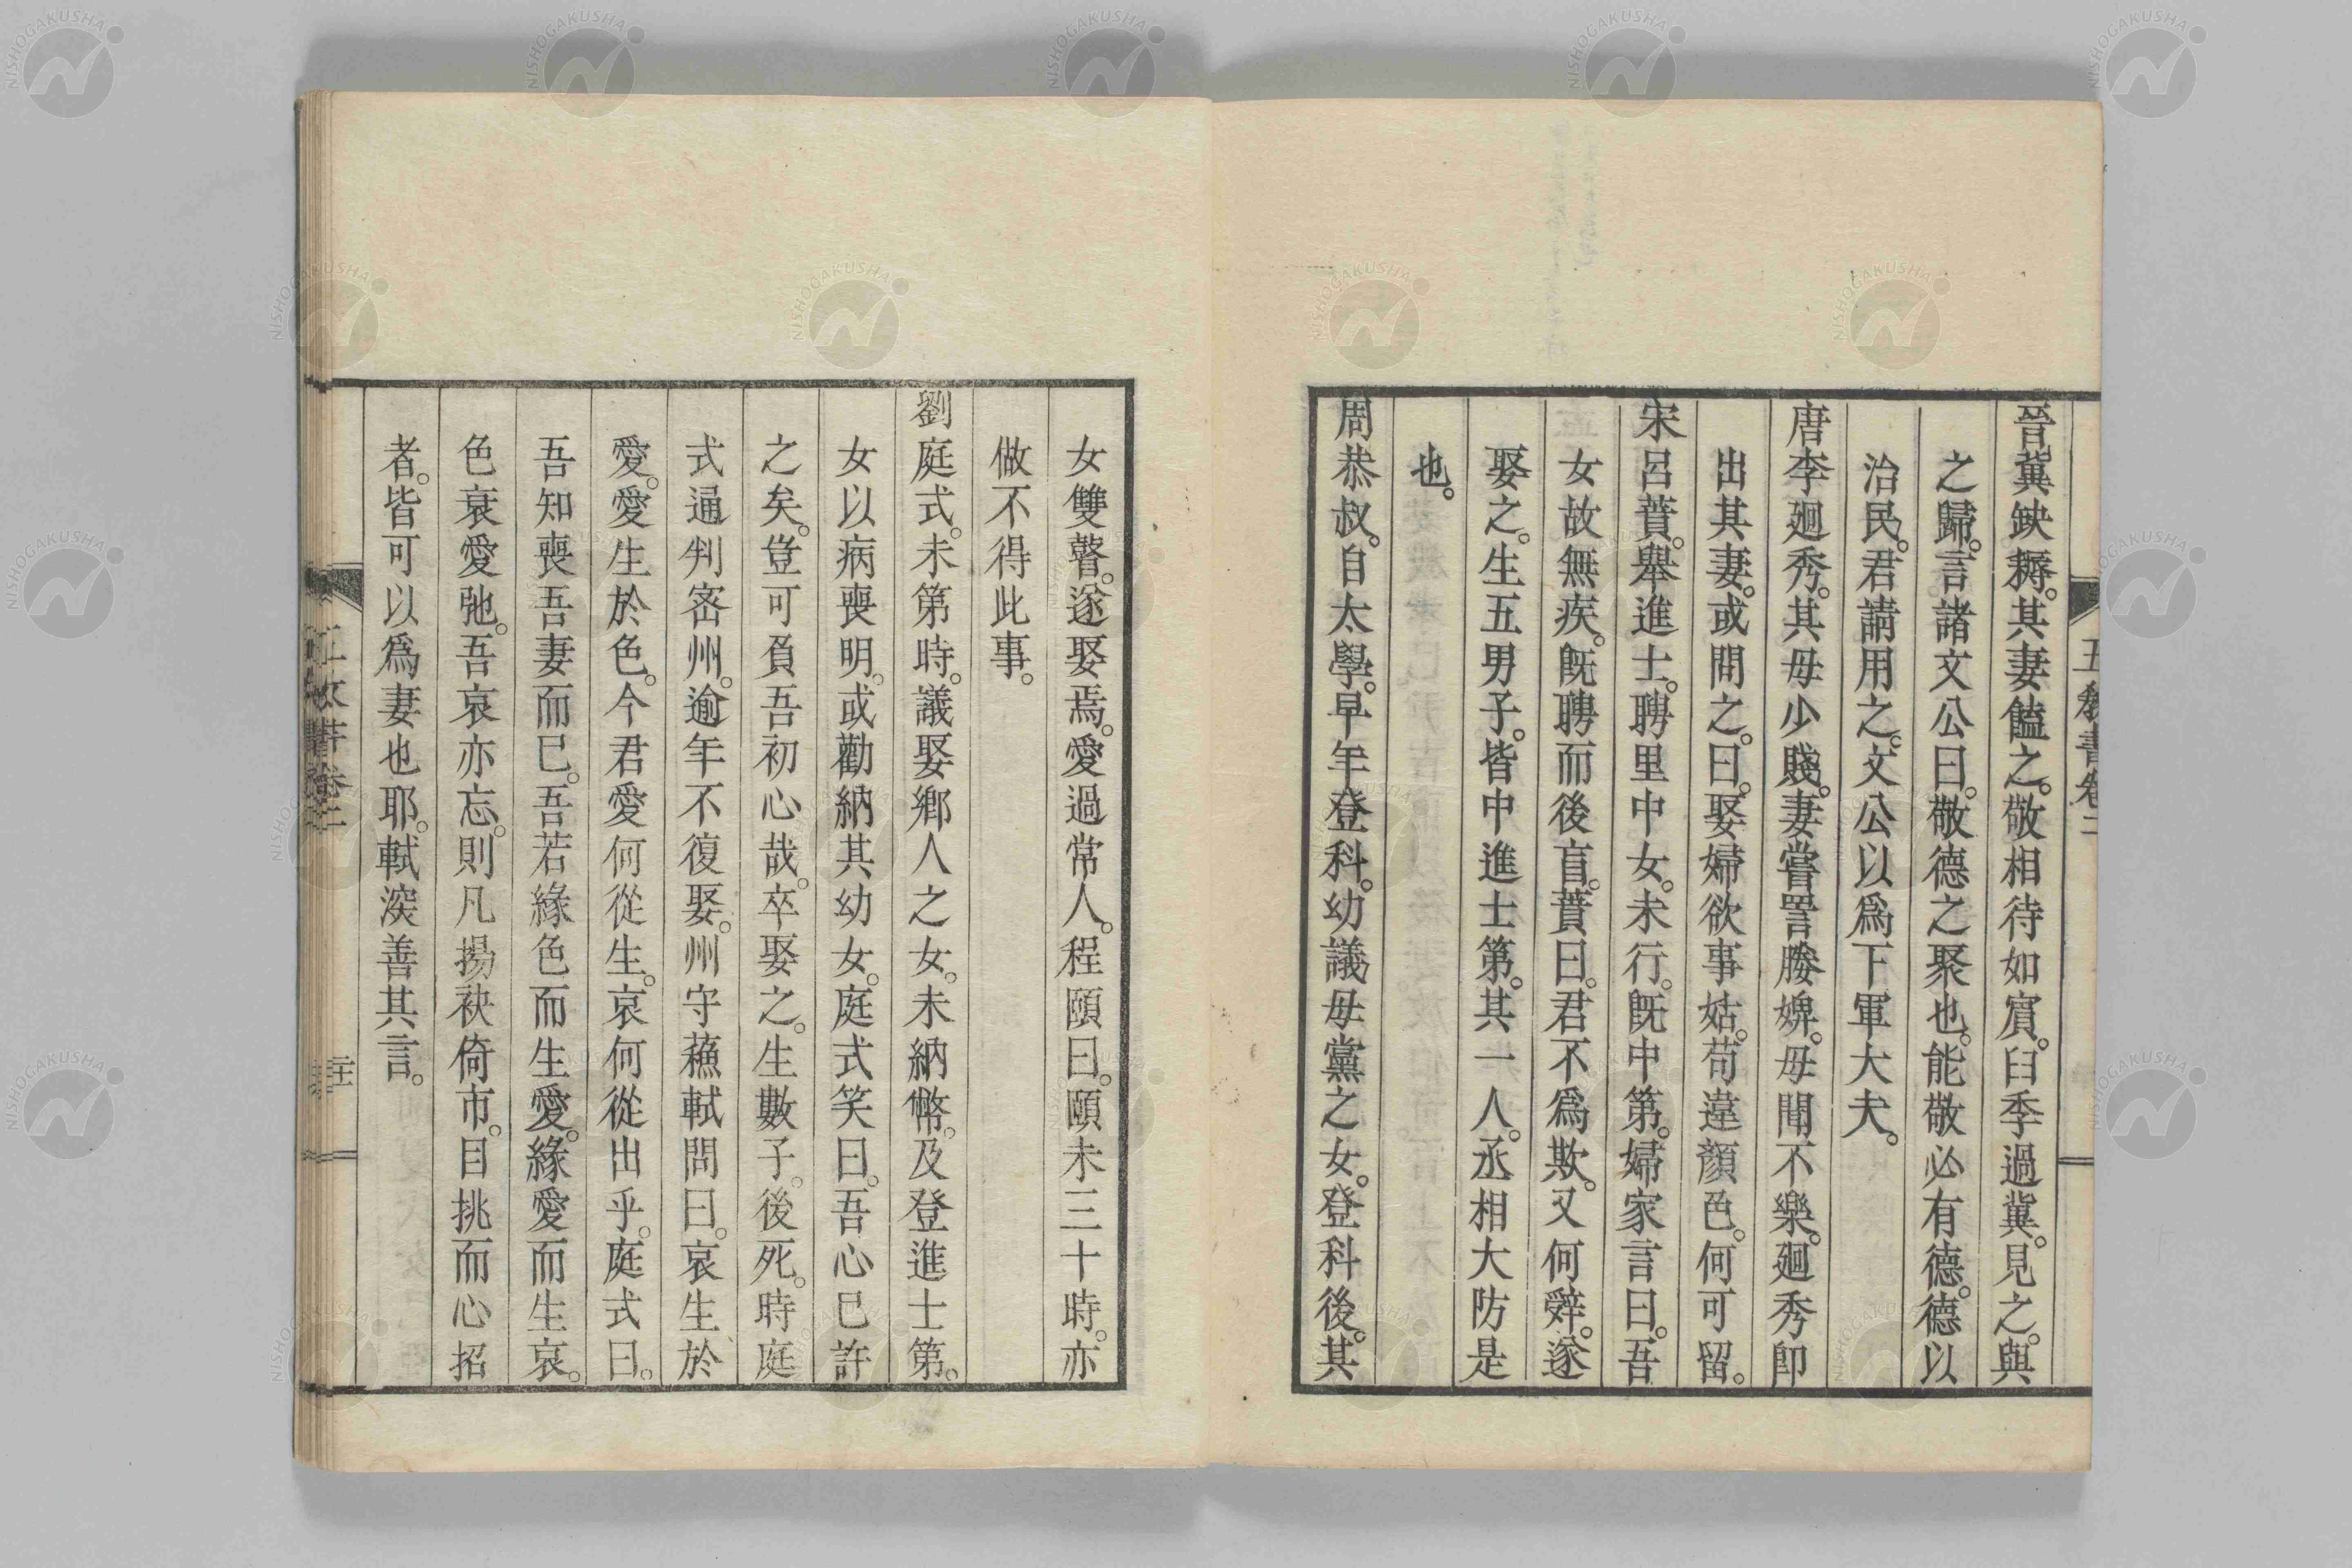 五種書卷二
晉冀缺耨。其妻饁之。敬相待如賓。臼季過冀。見之。與
之歸。言諸文公曰。敬德之聚也。能敬必有德。德以
治民。君請用之。文公以爲下軍大夫。
唐李廻秀。其母少賤。妻嘗詈媵婢。母聞不樂。廻秀卽
出其妻。或問之。曰。娶婦欲事姑。苟違顏色。何可留。
宋呂蕡。舉進士。聘里中女。未行。旣中第。婦家言曰。吾
女故無疾。旣聘而後盲。蕡曰。君不爲欺。又何辭。遂
娶之。生五男子。皆中進士第。其一人。丞相大防是
也。
周恭叔。自太學。早年登科。幼議母黨之女。登科後。其
女雙瞽。遂娶焉。愛過常人。程頤曰。頤未三十時。亦
做不得此事。
劉庭式。未第時。議娶鄉人之女。未納幣。及登進士第。
女以病喪明。或勸納其幼女。庭式笑曰。吾心已許
之矣。豈可負吾初心哉。卒娶之。生數子。後死。時庭
式通判密州。逾年不復娶。州守蘓軾問曰。哀生於
愛。愛生於色。今君愛何從生。哀何從出乎。庭式曰。
吾知喪吾妻而已。吾若緣色而生愛。緣愛而生哀。
色衰愛弛。吾哀亦忘。則凡揚袂倚市。目挑而心招
者。皆可以爲妻也耶。軾深善其言。
卷二
NISHOGAKUSHA